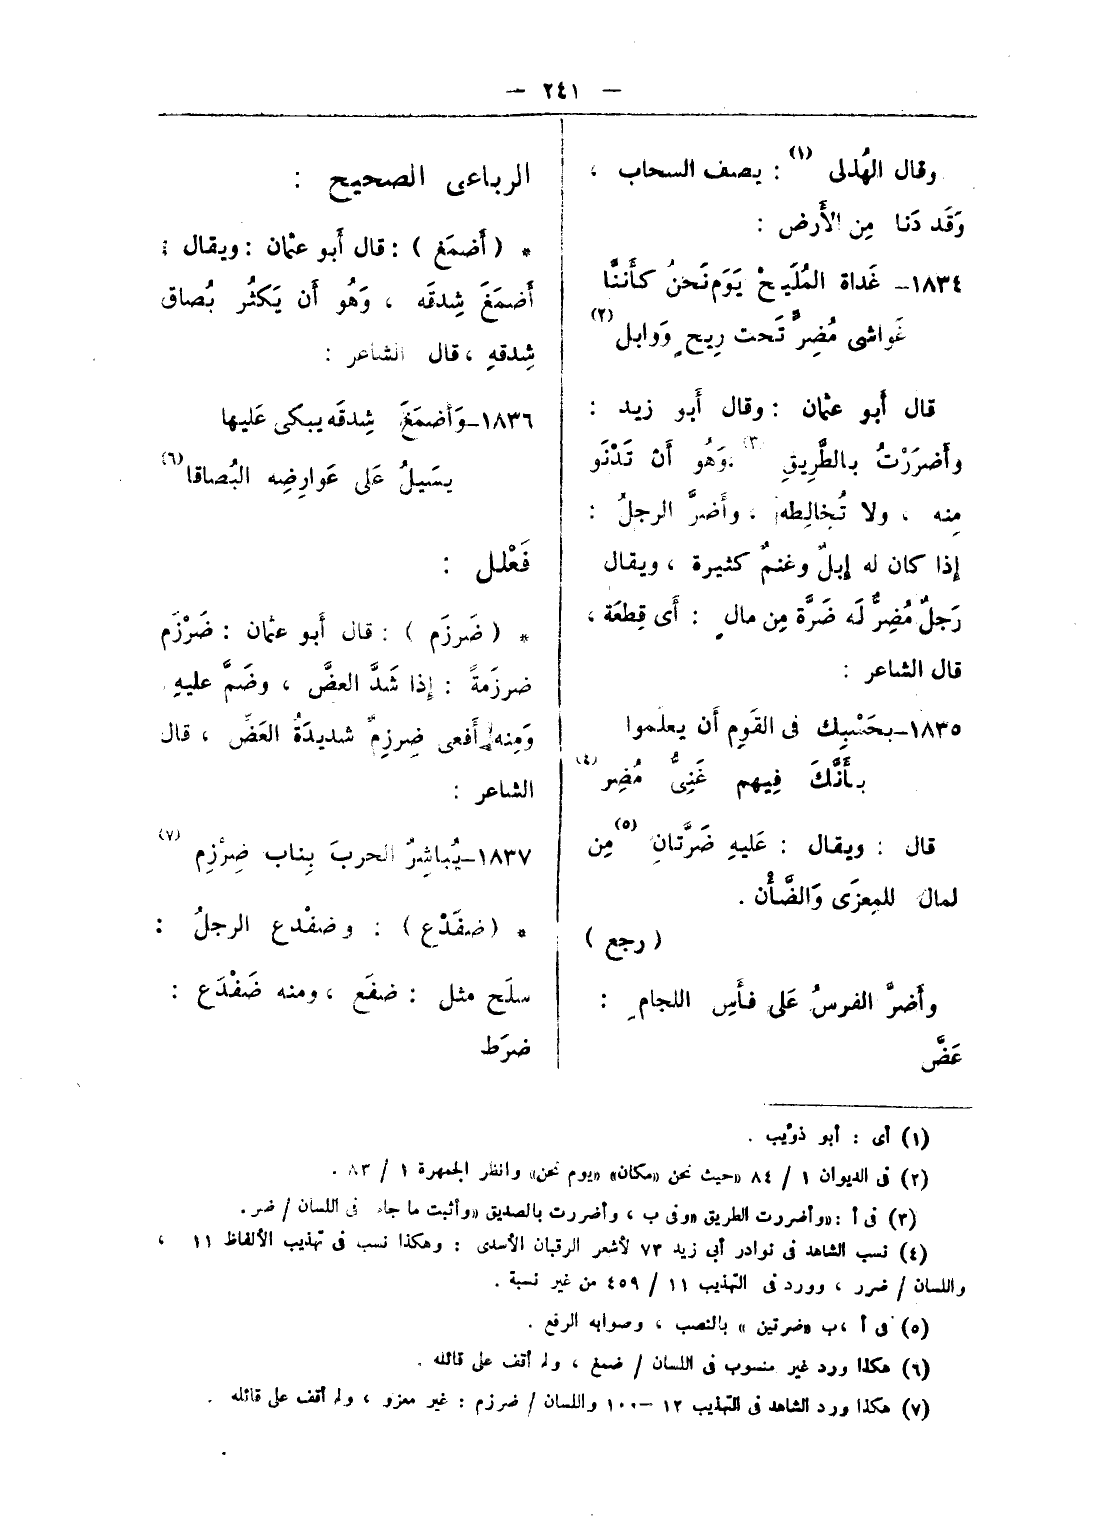 — ٢٤١ —
وقال الهُذلى (١) : يصف السحاب ،
وَقَد دَنا مِن الأَرض :
١٨٣٤– غَداة المُلَيحْ يَوَم نَحنُ كأَننَّا
غَواشى مُضِرٍّ تَحت رِيح ٍ وَوابل (٢)
قال أَبو عثمان : وقال أَبو زيد :
وأَضرَرْتُ بالطَّرِيقِ (٣) ، وَهُو أَنْ تَدْنَو
مِنه ، ولا تُخالِطه ، وأَضرَّ الرجلُ :
إذا كان له إبلٌ وغنمٌ كثيرة ، ويقال
رَجلٌ مُضِرٌّ لَه ضَرَّة مِن مال ٍ : أَى قِطعَة ،
قال الشاعر :
١٨٣٥–بحَسْبِك فى القَومِ أَن يعلَموا
بأَنَّكَ فِيهم غَنِىٌّ مُضِر (٤)
قال : ويقال : عَليهِ ضَرَّتانِ (٥) مِن
لمال للمِعزَى وَالضَّأْن .
( رجع )
وأَضرَّ الفرسُ عَلى فأْسِ اللجام ِ :
عَضَّ
الرباعى الصحيح :
* ( أَضمَغ ) : قال أَبو عثمان : ويقال :
أَضمَغَ شِدقَه ، وَهُو أَن يَكثُر بُصاق
شِدقهِ ، قال الشاعر :
١٨٣٦–وَأَضمَغَ شِدقَه يبكى عَليها
يسَيلُ عَلى عَوارِضِه البُصاقا (٦)
فَعْلل :
* ( ضَرزَم ) : قال أَبو عثمان : ضَرْزَم
ضرزَمةً : إذا شَدَّ العضَّ ، وضَمَّ عليهِ
وَمِنه أَفعى ضِرزِمٌ شديدَةُ العَضِّ ، قال
الشاعر :
١٨٣٧–يُباشِرُ الحربَ بِناب ضِرْزِم (٧)
* (ضفَدْع ) : وضفْدع الرجلُ :
سلَح مثل : ضفَع ، ومنه ضَفْدَع :
ضرَط
(١) أى : أبو ذؤيب .
(٢) فى الديوان ١ / ٨٤ «حيث نحن «مكان» «يوم نحن» وانظر الجمهرة ١ / ٨٣ .
(٣) فى أ : «وأضررت الطريق «وفى ب ، وأضررت بالصديق «وأثبت ما جاء فى اللسان / ضر .
(٤) نسب الشاهد فى نوادر أبى زيد ٧٣ لأشعر الرقبان الأسدى : وهكذا نسب فى تهذيب الألفاظ ١١ ،
واللسان / ضرر ، وورد فى التهذيب ١١ / ٤٥٩ من غير نسبة .
(٥) فى أ ،ب «ضرتين » بالنصب ، وصوابه الرفع .
(٦) هكذا ورد غير منسوب فى اللسان / ضمغ ، ولم أقف على قائله .
(٧) هكذا ورد الشاهد فى التهذيب ١٢ –١٠٠ واللسان / ضرزم : غير معزو ، ولم أقف على قائله .